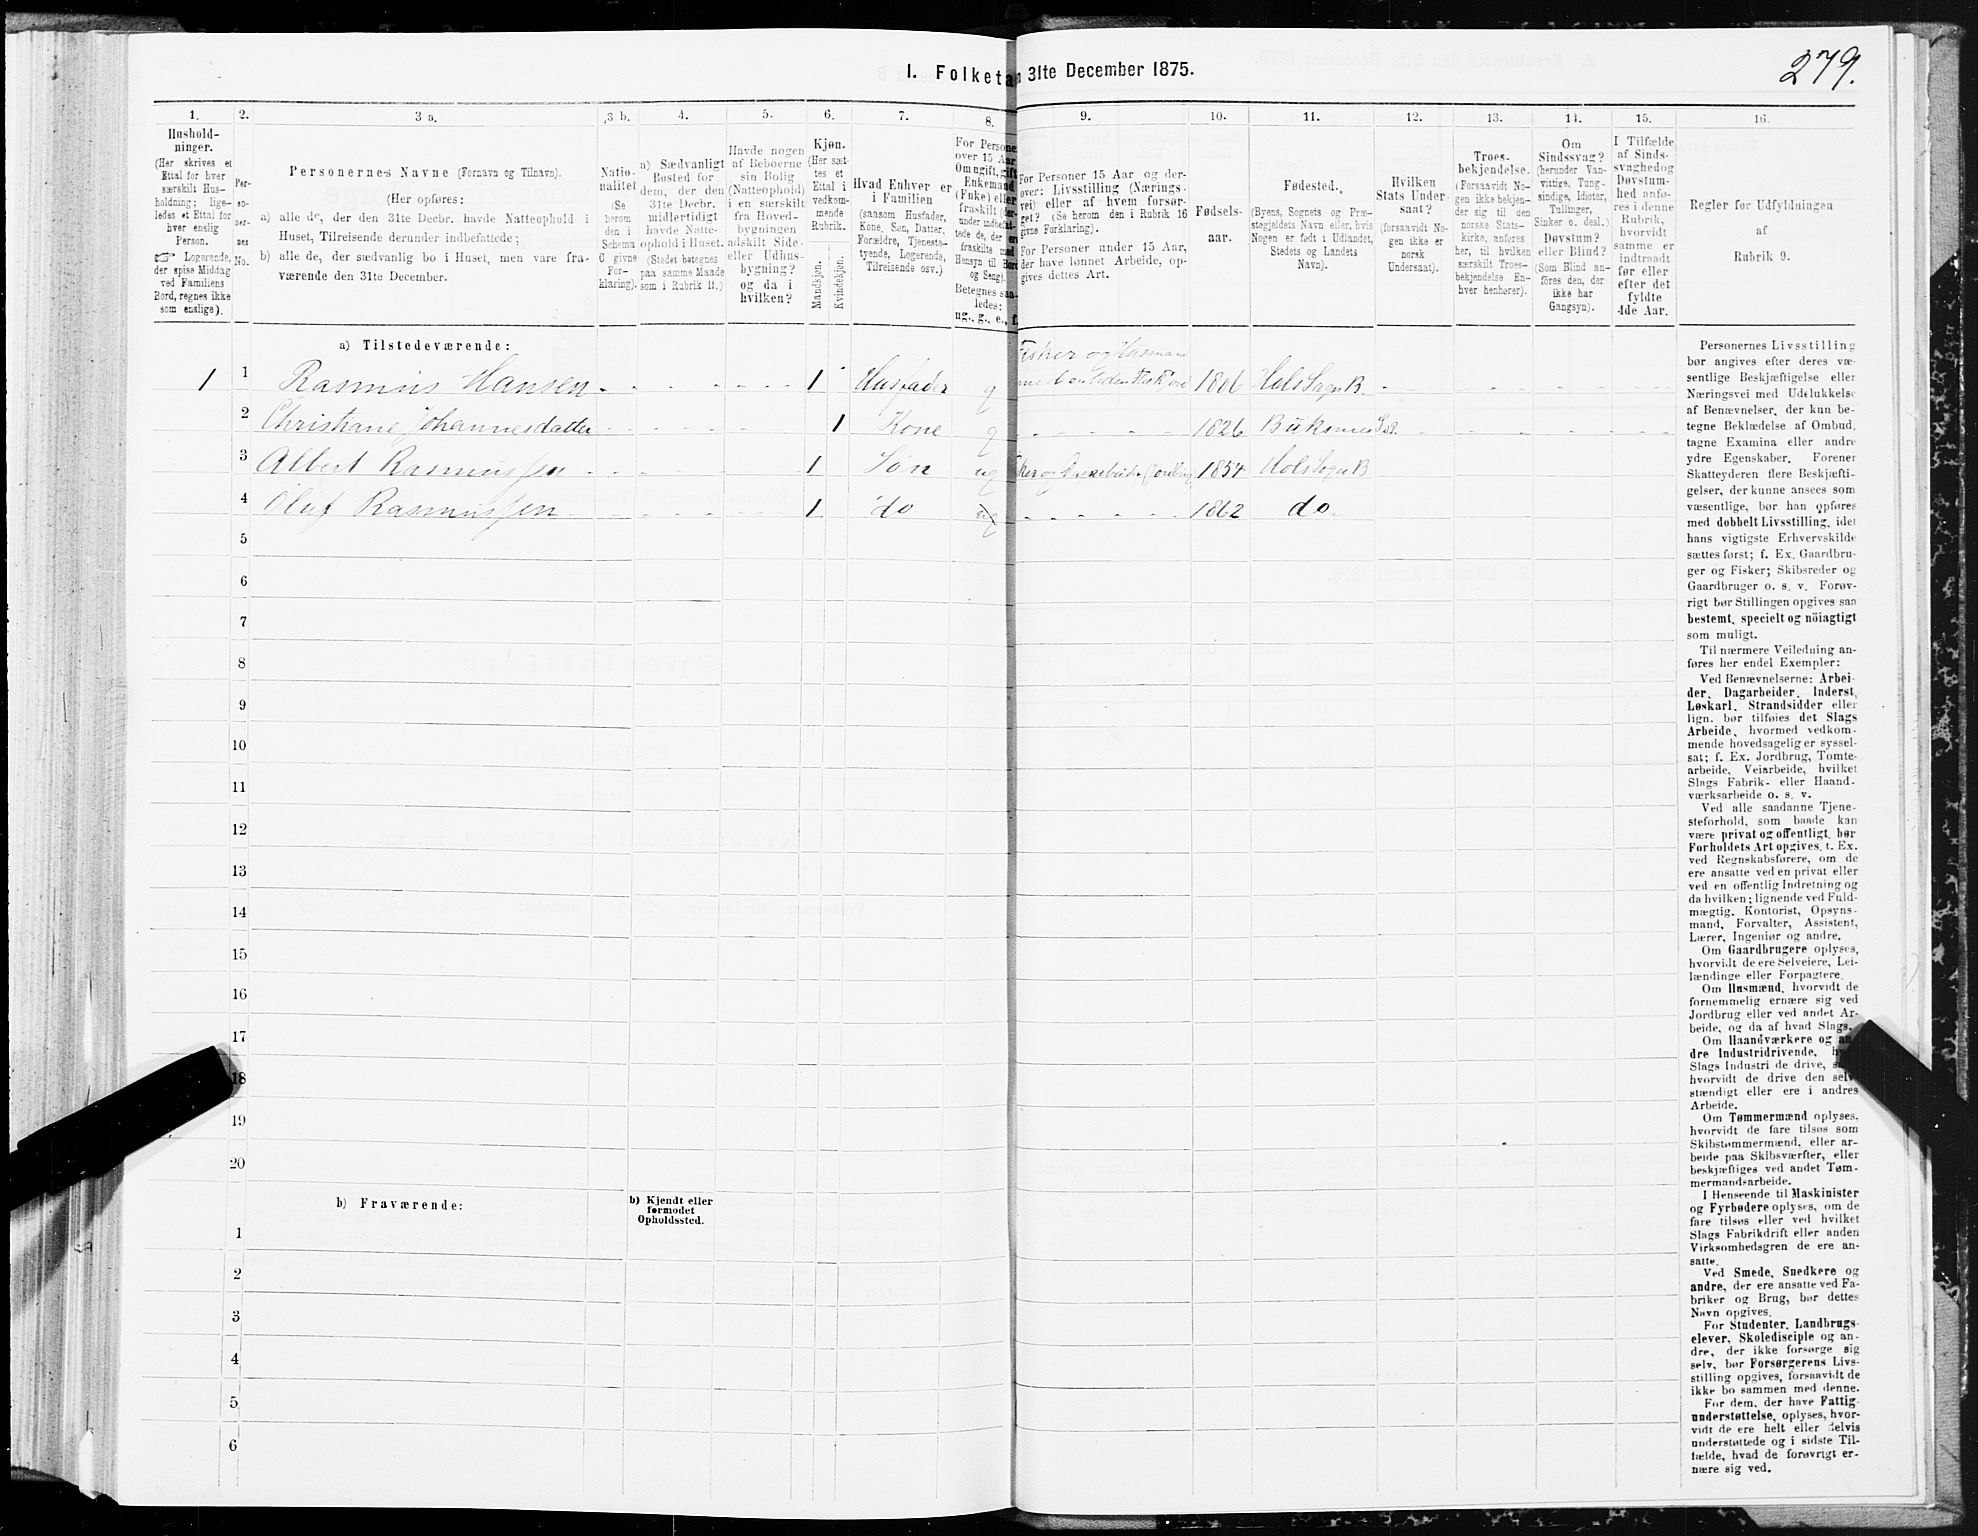 1. Folketa n 31te December 1875.
279.
1.
Hushold-
ninger.
(Her skrives et
Ettal for hver
særskilt Hus-
holdning; lige-
ledes et Ettal for
hver enslig
Person.
☞ Logerende,
der spise Middag
ved Familiens
Bord, regnes ikke
som enslige).
2.
Per-
so-
ner-
nes
No.
3 a.
Personernes Navne (Fornavn og Tilnavn).
(Her opføres:
a) alle de, der den 31te Decbr. havde Natteophold i
Huset, Tilreisende derunder indbefattede;
b) alle de, der sædvanlig bo i Huset, men vare fra-
værende den 31te December.
3 b.
Natio-
nalitet
(Se
herom
den i
Schema
C givne
For-
klaring).
4.
a) Sædvanligt
Bosted for
dem, der den
31te Decbr.
midlertidigt
havde Natte-
ophold i Huset.
(Stedet betegnes
paa samme Maade
som i Rubrik 11.)
5.
Havde nogen
af Beboerne
sin Bolig
(Natteophold)
i en særskilt
fra Hoved-
bygningen
adskilt Side-
eller Udhus-
bygning?
og da i
hvilken?
6.
Kjøn.
(Her sæt-
tes et
Ettal i
vedkom-
mende
Rubrik.
Mandkjøn.
Kvindekjøn.
7.
Hvad Enhver er
i Familien
(saasom Husfader,
Kone, Søn, Datter,
Forældre, Tjeneste-
tyende, Logerende,
Tilreisende osv.)
8.
For Persone
over 15 Aar
Om ugift, gift
Enkemand
(Enke) eller
fraskilt (der-
under indbefat-
tede de, der ere
fraskilte med
Hensyn til Bord
og Seng).
Betegnes saa-
ledes:
ug., g., e., f.
9.
For Personer 15 Aar og der-
over: Livsstilling (Nærings-
vei) eller af hvem forsør-
get? (Se herom den i Rubrik 16
givne Forklaring).
For Personer under 15 Aar,
der have lønnet Arbeide, op-
gives dettes Art.
10.
Fødsels-
aar.
11.
Fødested.
(Byens, Sognets og Præ-
stegjeldets Navn eller, hvis
Nogen er født i Udlandet,
Stedets og Landets
Navn).
12.
Hvilken
Stats Under-
saat?
(forsaavidt No-
gen ikke er
norsk
Undersaat).
13.
Troes-
bekjendelse.
(Forsaavidt No-
gen ikke bekjen-
der sig til den
norske Stats-
kirke, anføres
her, til hvilken
særskilt Troes-
bekjendelse En-
hver henhører).
14.
Om
Sindssvag?
(herunder Van-
vittige, Tung-
sindige, Idioter,
Tullinger,
Sinker o. desl.)
Døvstum?
eller Blind?
(Som Blind an-
føres den, der
ikke har
Gangsyn).
15.
I Tilfælde
af Sinds-
svaghedog
Døvstum-
hed anfø-
res i denne
Rubrik,
hvorvidt
samme er
indtraadt
før eller
efter det
fyldte
4de Aar.
16.
Regler for Udfyldningen
af
Rubrik 9.
a) Tilstedeværende:
1 1 Rasmus Hansen 1 Husfader g Fisker og Husmand 1806 Hols Sogn B.
2 Christiane Johannesdatter 1 Kone g 1826 Buksnes
3 Albert Rasmussen 1 Søn ug 1854 Hols Sogn B
4 Oluf Rasmussen 1 do ug 1862 do.
5
6
7
8
9
10
11
12
13
14
15
16
17
18
19
20
b) Fraværende:
b) Kjendt eller
formodet
Opholdssted.
1
2
3
4
5
6
Personernes Livsstilling
bør angives efter deres væ-
sentlige Beskjæftigelse eller
Næringsvei med Udelukkelse
af Benævnelser, der kun be-
tegne Beklædelse af Ombud,
tagne Examina eller andre
ydre Egenskaber. Forener
Skatteyderen flere Beskjæfti-
gelser, der kunne ansees som
væsentlige, bør han opføres
med dobbelt Livsstilling, idet
hans vigtigste Erhvervskilde
sættes først; f. Ex. Gaardbru-
ger og Fisker; Skibsreder og
Gaardbruger o. s. v. Forøv-
rigt bør Stillingen opgives saa
bestemt, specielt og nöiagtigt
som muligt.
Til nærmere Veiledning an-
føres her endel Exempler:
Ved Benævnelserne: Arbei-
der, Dagarbeider, Inderst,
Løskarl, Strandsidder eller
lign. bør tilføies det Slags
Arbeide, hvormed vedkom-
mende hovedsagelig er syssel-
sat; f. Ex. Jordbrug, Tomte-
arbeide, Veiarbeide, hvilket
Slags Fabrik- eller Haand-
værksarbeide o. s. v.
Ved alle saadanne Tjene-
steforhold, som baade kan
være privat og offentligt, bør
Forholdets Art opgives, t. Ex.
ved Regnskabsførere, om de
ere ansatte ved en privat eller
ved en offentlig Indretning og
da hvilken; lignende ved Fuld-
mægtig, Kontorist, Opsyns-
mand, Forvalter, Assistent,
Lærer, Ingeniør og andre.
Om Gaardbrugere oplyses,
hvorvidt de ere Selveiere, Lei-
lændinge eller Forpagtere.
Om Husmænd, hvorvidt de
fornemmelig ernære sig ved
Jordbrug eller ved andet Ar-
beide, og da af hvad Slags.
Om Haandværkere og an-
dre Industridrivende,
Slags Industri de drive,
hvorvidt de drive den selv-
stændigt eller ere i andres
Arbeide.
Om Tømmermænd oplyses,
hvorvidt de fare tilsøs som
Skibstømmermænd, eller ar-
beide paa Skibsværfter, eller
beskjæftiges ved andet Tøm-
mermandsarbeide.
I Henseende til Maskinister
og Fyrbødere oplyses, om de
fare tilsøs eller ved hvilket
Slags Fabrikdrift eller anden
Virksomhedsgren de ere an-
satte.
Ved Smede, Snedkere og
andre, der ere ansatte ved Fa-
briker og Brug, bør dettes
Navn opgives.
For Studenter, Landbrugs-
elever, Skoledisciple og an-
dre, der ikke forsørge sig
selv, bør Forsørgerens Livs-
stilling opgives, forsaavidt de
ikke bo sammen med denne.
For dem, der have Fattig-
understøttelse, oplyses, hvor-
vidt de ere helt eller delvis
understøttede og i sidste Til-
fælde, hvad de forøvrigt er-
nære sig ved.